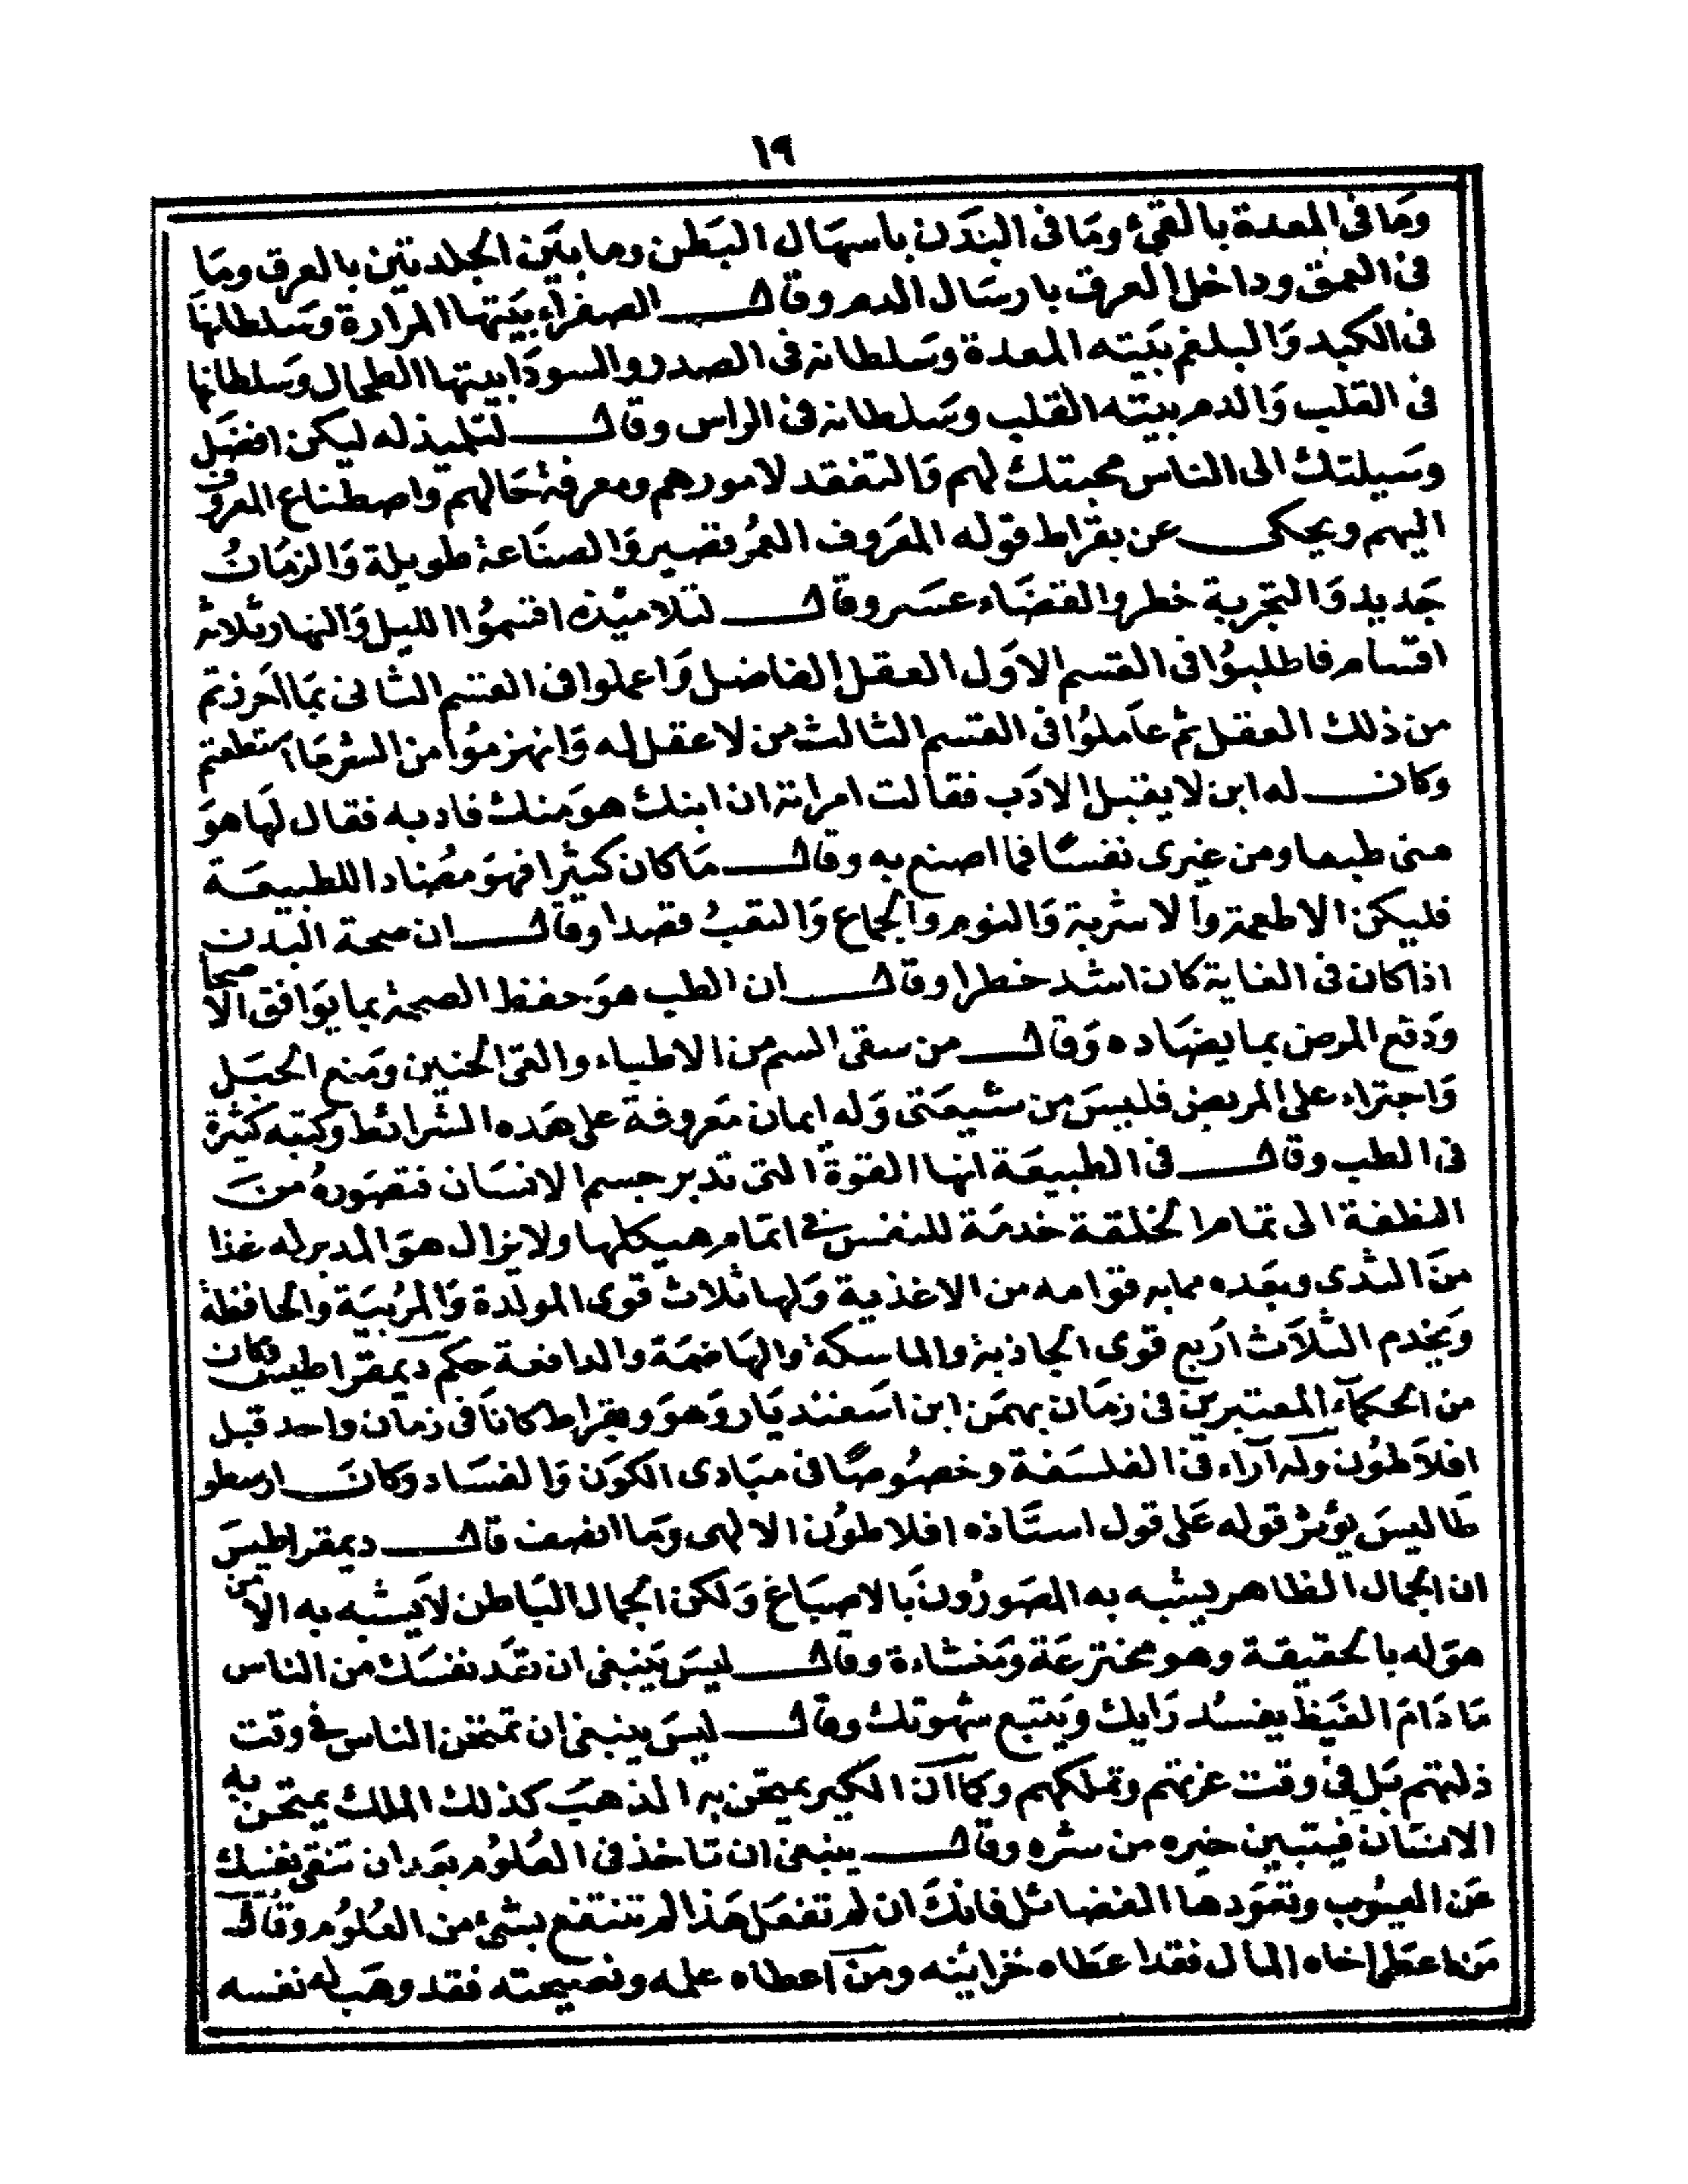 ١٩
ومَا فى المعدة بالقئ ومَا فى البَدَن باسهَال البَطن وما بيَن الجلدتين بالعرق ومَا
فى العمق وداخل العرق بارسَال الدم وقال الصفراء بيَتها المرارة وسَلطانها
فى الكبد وَالبلغم بيَته المعدة وسَلطانه فى الصدر والسودَا بيتها الطحال وسَلطانها
فى القلب وَالدم بيتَه القلب وسَلطانه فى الراس وقال لتلميذ له ليكن افضَل
وسَيلتك الى الناس محبتك لهم وَالتفقد لامورهم ومعرفة حَالهم واصطناع المعروف
اليهم ويحكى عن بقراط قوله المعَروف العمُر قصير وَالصنَاعة طويلة وَالزمَانُ
جَديد وَالتجربة خطر والقضَاء عسَر وقال لتلاميَذه اقتسِموُا الليل وَالنهار ثلاثة
اقسَام فاطلبوُا فى القسم الاوَل العقل الفاضل وَاعملوا فى القسم الثانى بمَا احرزتم
من ذلك العقل ثم عَاملوُا فى القسم الثالث من لا عقل له وَانهزموُا من الشر مَا استطعتم
وكان له ابن لا يقبل الادَب فقالت امراته ان ابنك هوَ منك فادبه فقال لهَا هوَ
منى طبعا ومن غيرى نفسًا فما اصنع به وقال مَا كان كثيرا فهوَ مضادا للطبيعَة
فليكن الاطعمة والاشربة وَالنوم وَالجماع وَالتعبُ قصدا وقال ان صحة البَدن
اذا كان فى الغاية كان اشد خطرا وقال ان الطب هوَ حفظ الصحة بما يوَافق الاصحا
وَدفع المرض بما يضَاده وَقال من سقى السم من الاطباء والقى الجنين ومَنع الحبَل
وَاجتراء على المريض فليسَ من شيعَتى وَله ايمان مَعروفة على هَذه الشرائط وكتبه كثيرة
فى الطب وقال فى الطبيعَة انها القوة التى تدبر جسم الانسَان فتصَورهُ منَ
النطفة الى تمام الخلقة خدمَة للنفس فى اتمَام هيكلها ولا يزال هوَ المدبر له غذا
منَ الثدى وبعَده مما به قوامه من الاغذية وَلها ثلاث قوى المولدة وَالمرُبيَة والحافظة
وَيخدم الثلاَث ارَبع قوى الجاذبة والماسكة والهَاضمَة والدافعة حكم ديمقراطيس وكان
من الحكمآء المعتبرين فى زمَان بهمَن ابن اسَفنديَار وَهوَ وبقراط كانَا فى زمَان واحد قبل
افلاَطوُن وله آرَاء فى الفلسَفة وخصوُصًا فى مبَادى الكوَن وَالفسَاد وكانَ ارسطو
طَاليسَ يؤثر قوله عَلى قول استَاذه افلاطوُن الالهى ومَا انصف قال ديمقراطيسَ
ان الجمال الظاهر يشبه به المصَوروُنَ بَالاصبَاغ وَلكن الجمال البَاطن لاَ يَشبه به الا من
هوَ له بالحقيقة وهو مخترعَة ومَنشاءة وقال ليسَ يَنبغى ان تعَد نفسَك من الناس
مَا دَامَ الغيَظ يفسُد رَايك وَيَتبع شهوتك وقال ليسَ ينبغى ان تمتحن الناس فى وقت
ذلتهم بَل فى وقت عزتهم وتملكهم وكما ان الكير يمتحن به الذهَب كذلك الملك يمتحن به
الانسَان فيَتبين خيره من شره وقال ينبغى ان تاخذ فى العلُوُم بعَد ان تنقى نفسك
عَن العيوُب وتعوَدها الفضائل فانكَ ان لم تفعَل هَذا لم تنتفع بشئ من العلُوُم وقال
مَن اعطى اخاه المال فقد اعطَاه خزاينه ومَن اعطاه علمه ونصيحته فقد وهَب له نفسه